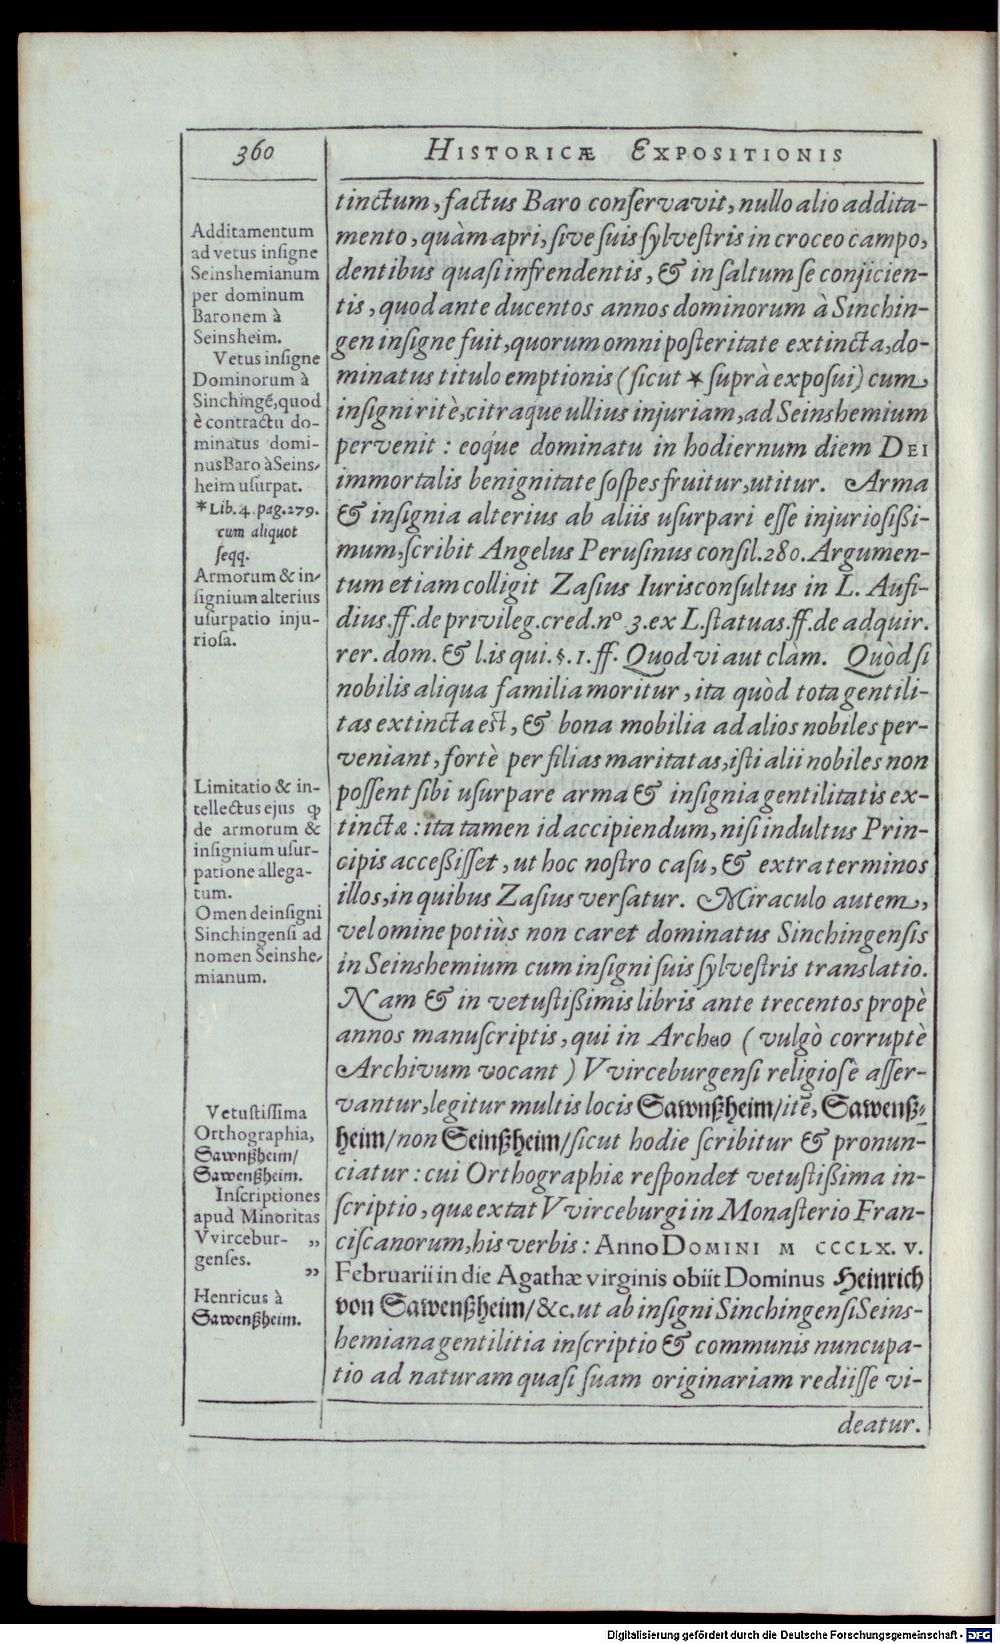 360
HISTORICÆ EXPOSITIONIS
Additamentum
ad vetus insigne
Seinshemianum
per dominum
Baronem à
Seinsheim.
Vetus insigne
Dominorum à
Sinchingẽ, quod
è contractu do-
minatus domi-
nus Baro à Seins-
heim usurpat.
*Lib. 4. pag. 279.
cum aliquot
seqq.
Armorum & in-
signium alterius
usurpatio inju-
riosa.
Limitatio & in-
tellectus ejus ꝙ
de armorum &
insignium usur-
patione allega-
tum.
Omen de insigni
Sinchingensi ad
nomen Seinshe-
mianum.
Vetustissima
Orthographia,
Sawnßheim/
Sawenßheim.
Inscriptiones
apud Minoritas
Vvircebur- „
genses. „
Henricus à
Sawenßheim.
tinctum, factus Baro conservavit, nullo alio addita-
mento, quàm apri, sive suis sylvestris in croceo campo,
dentibus quasi infrendentis, & in saltum se conjicien-
tis, quod ante ducentos annos dominorum à Sinchin-
gen insigne fuit, quorum omni posteritate extincta, do-
minatus titulo emptionis (sicut * suprà exposui) cum
insigni ritè, citraque ullius injuriam, ad Seinshemium
pervenit : eoq́ue dominatu in hodiernum diem DEI
immortalis benignitate sospes fruitur, utitur. Arma
& insignia alterius ab aliis usurpari esse injuriosißi-
mum, scribit Angelus Perusinus consil. 280. Argumen-
tum etiam colligit Zasius Iurisconsultus in L. Aufi-
dius. ff. de privileg. cred. nº 3. ex L. statuas. ff. de adquir.
rer. dom. & l. is qui. §. 1. ff. Quod vi aut clàm. Quòd si
nobilis aliqua familia moritur, ita quòd tota gentili-
tas extincta est, & bona mobilia ad alios nobiles per-
veniant, fortè per filias maritatas, isti alii nobiles non
possent sibi usurpare arma & insignia gentilitatis ex-
tinctæ : ita tamen id accipiendum, nisi indultus Prin-
cipis acceßisset, ut hoc nostro casu, & extra terminos
illos, in quibus Zasius versatur. Miraculo autem,
vel omine potiùs non caret dominatus Sinchingensis
in Seinshemium cum insigni suis sylvestris translatio.
Nam & in vetustißimis libris ante trecentos propè
annos manuscriptis, qui in Archeio ( vulgò corruptè
Archivum vocant ) Vvirceburgensi religiosè asser-
vantur, legitur multis locis Sawnßheim/ itẽ, Sawenß-
heim/ non Seinßheim/ sicut hodie scribitur & pronun-
ciatur : cui Orthographiæ respondet vetustißima in-
scriptio, quæ extat Vvirceburgi in Monasterio Fran-
ciscanorum, his verbis : Anno DOMINI M CCCLX. V.
Februarii in die Agathæ virginis obiit Dominus Heinrich
von Sawenßheim/ &c. ut ab insigni Sinchingensi Seins-
hemiana gentilitia inscriptio & communis nuncupa-
tio ad naturam quasi suam originariam rediisse vi-
deatur.
Digitalisierung gefördert durch die Deutsche Forschungsgemeinschaft - DFG